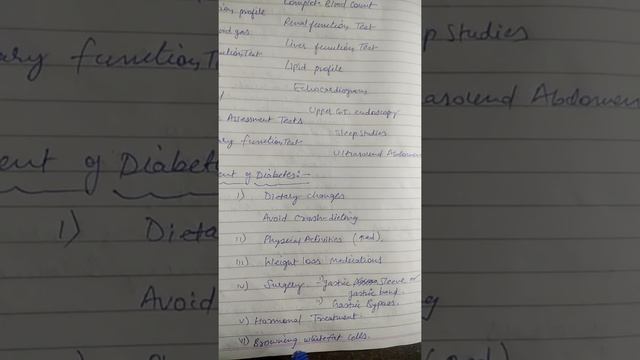 Complete Blood Count
profile
Renal function Test
gas
Liver function Test
Lipid profile
Echocardiogram
Upper G.I. endoscopy
Assessment Tests
Sleep Studies
function Test
Ultrasound Abdomen
of Diabetes:-
i) Dietary changes
Avoid crash-dieting
ii) Physical Activities
iii) Weight loss Medications
iv) Surgery - i) Gastric Sleeve or
gastric band.
ii) Gastric Bypass.
v) Hormonal Treatment.
vi) Browning white fat cells.